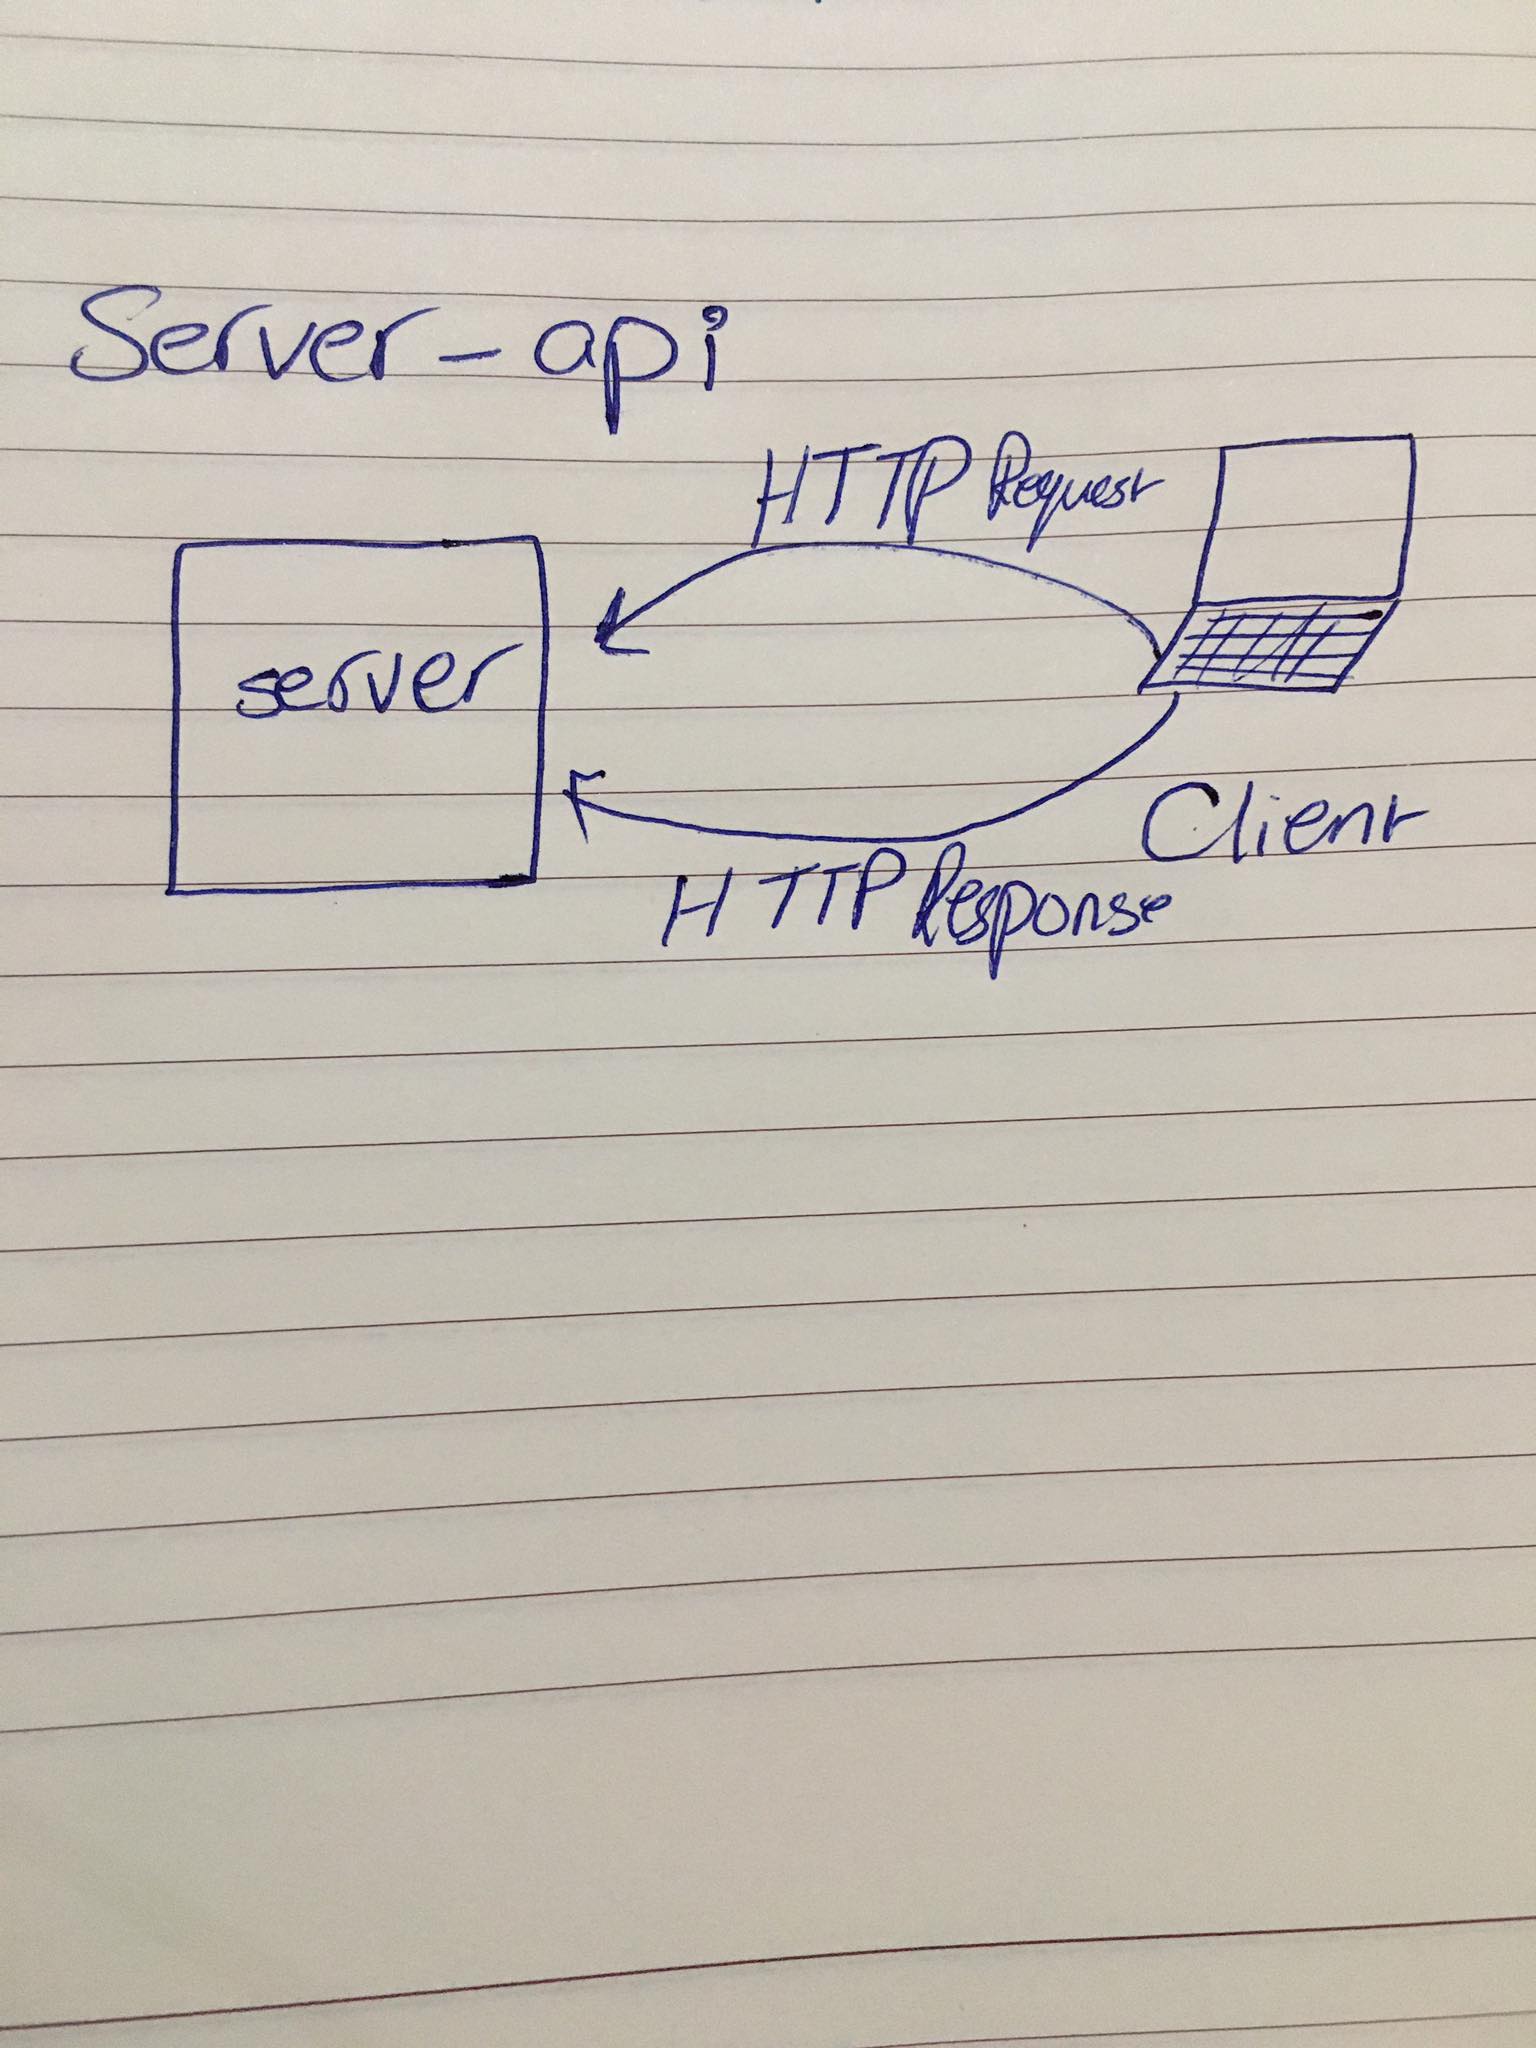 Server-api
HTTP Request
server
Client
HTTP Response